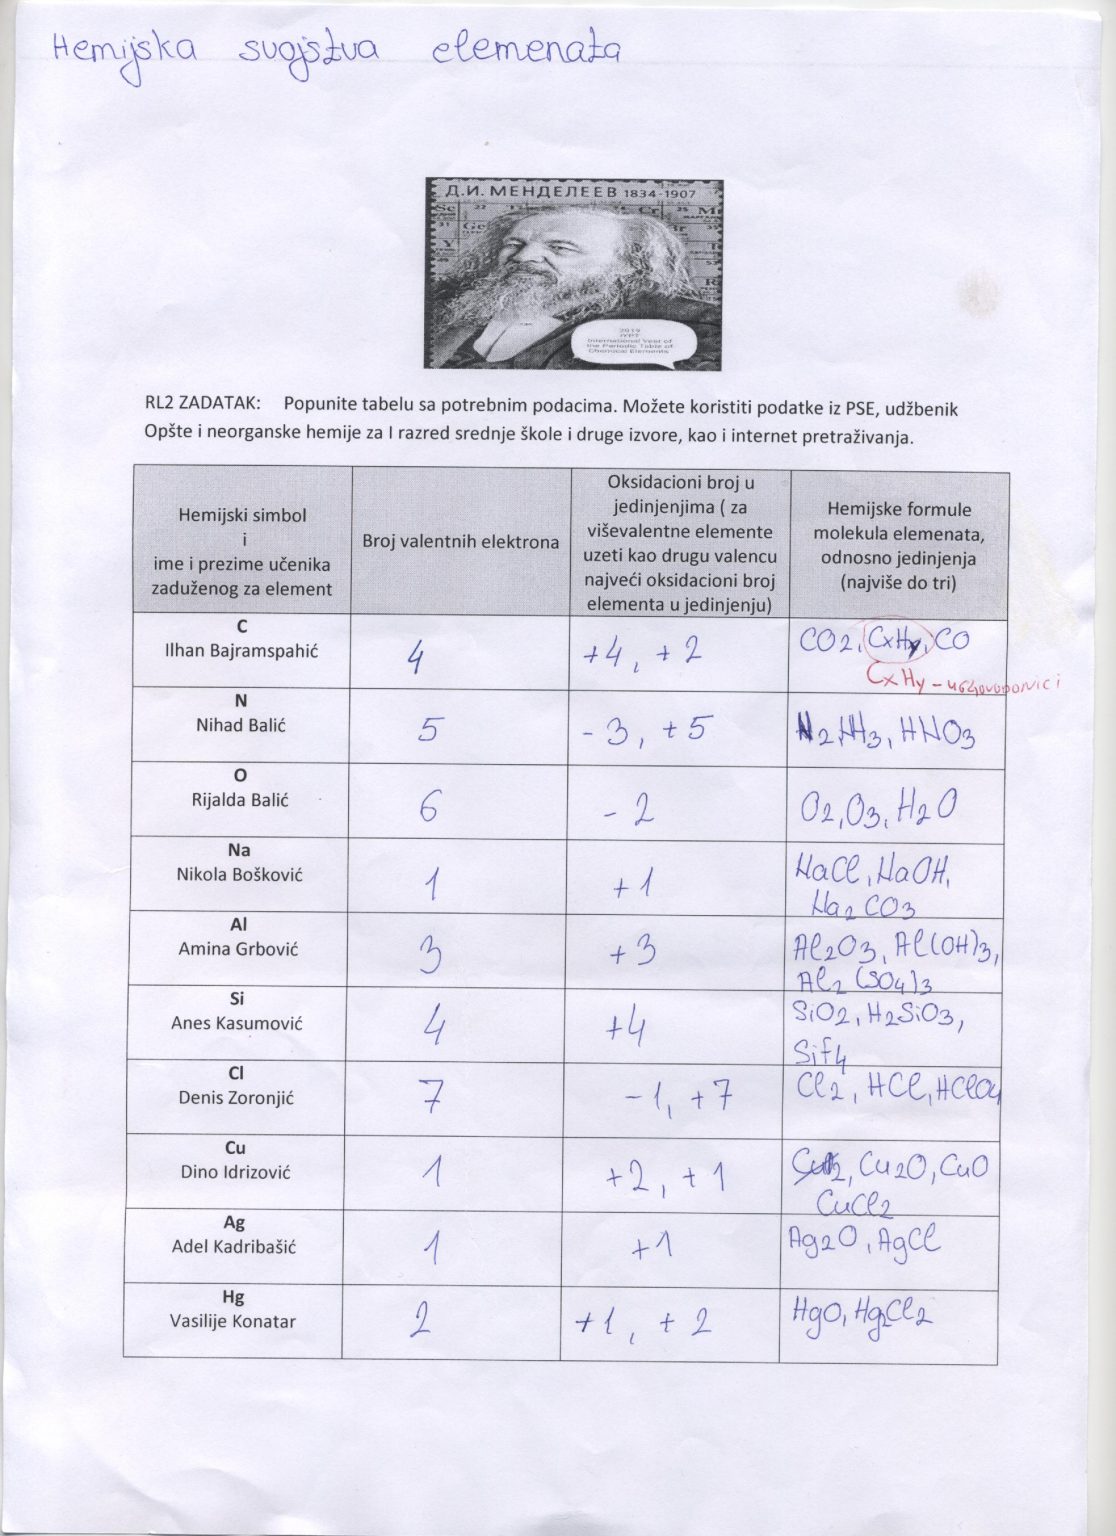 Hemijska svojstva elemenata
Д.И. МЕНДЕЛЕЕВ 1834-1907
2019
IYPT
International Year of
the Periodic Table of
Chemical Elements
RL2 ZADATAK: Popunite tabelu sa potrebnim podacima. Možete koristiti podatke iz PSE, udžbenik
Opšte i neorganske hemije za I razred srednje škole i druge izvore, kao i internet pretraživanja.
Hemijski simbol
i
ime i prezime učenika
zaduženog za element
Broj valentnih elektrona
Oksidacioni broj u
jedinjenjima ( za
viševalentne elemente
uzeti kao drugu valencu
najveći oksidacioni broj
elementa u jedinjenju)
Hemijske formule
molekula elemenata,
odnosno jedinjenja
(najviše do tri)
C
Ilhan Bajramspahić
4
+4, +2
CO2, CxHy, CO
CxHy - ugljovodonici
N
Nihad Balić
5
-3, +5
N2, NH3, HNO3
O
Rijalda Balić
6
-2
O2, O3, H2O
Na
Nikola Bošković
1
+1
NaCl, NaOH,
Na2CO3
Al
Amina Grbović
3
+3
Al2O3, Al(OH)3,
Al2(SO4)3
Si
Anes Kasumović
4
+4
SiO2, H2SiO3,
Sif4
Cl
Denis Zoronjić
7
-1, +7
Cl2, HCl, HClO4
Cu
Dino Idrizović
1
+2, +1
Cu2O, CuO
CuCl2
Ag
Adel Kadribašić
1
+1
Ag2O, AgCl
Hg
Vasilije Konatar
2
+1, +2
HgO, Hg2Cl2